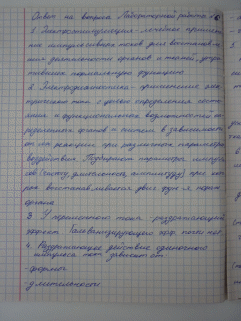 Ответ на вопросы Лабораторной работы №6
1. Электростимуляция - лечебное применение
импульсного тока для восстановле-
ния деятельности органов и тканей, утра-
тивших нормальную функцию
2. Электродиагностика - применение элек-
трического тока с целью определения состо-
яния и функциональных возможностей оп-
ределенных органов и тканей в зависимости
от их реакции при различных параметрах
воздействия. Подбирают параметры импуль-
сов (частоту, длительность, амплитуду), при кото-
рых восстанавливается двиг. функ-я
органа
3. У переменного тока - раздражающий
эффект
4. Раздражающее действие одиночного
импульса тока зависит от:
- формы
- длительности